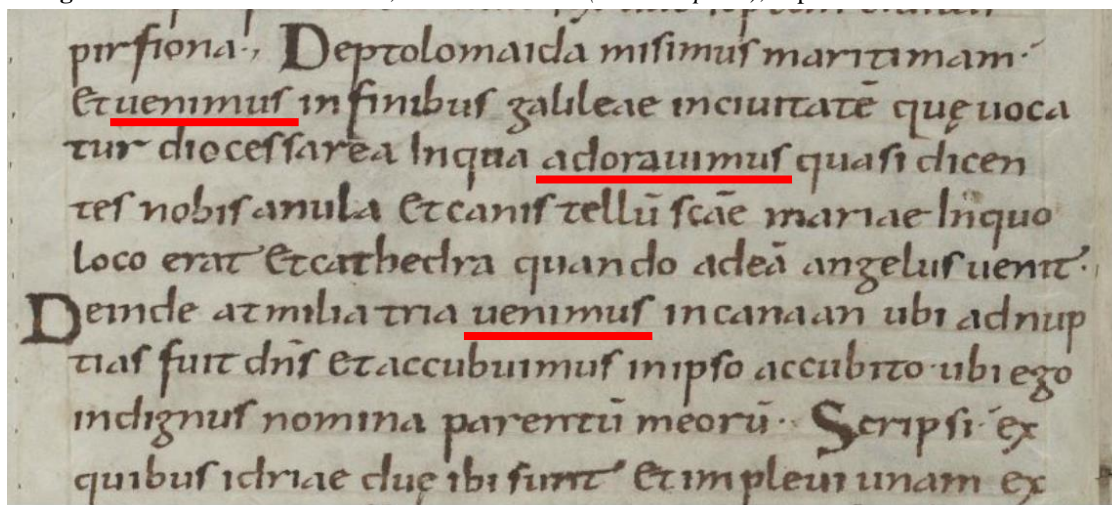 pirfiona·, Deptolomaida misimus maritimam·
Etuenimus in finibus galileae inciuitatē quę uoca
tur diocessarea Inqua adorauimus quasi dicen
tes nobis anula Et canis tellū scāe mariae Inquo
loco erat Et cathedra quando adeā angelus uenit·
Deinde at milia tria uenimus in canaan ubi ad nup
tias fuit dn̄s et accubuimus in ipso accubito· ubi ego
indignus nomina parentū meorū·· Scripsi· ex
quibus idriae duę ibi sunt Et impleui unam ex